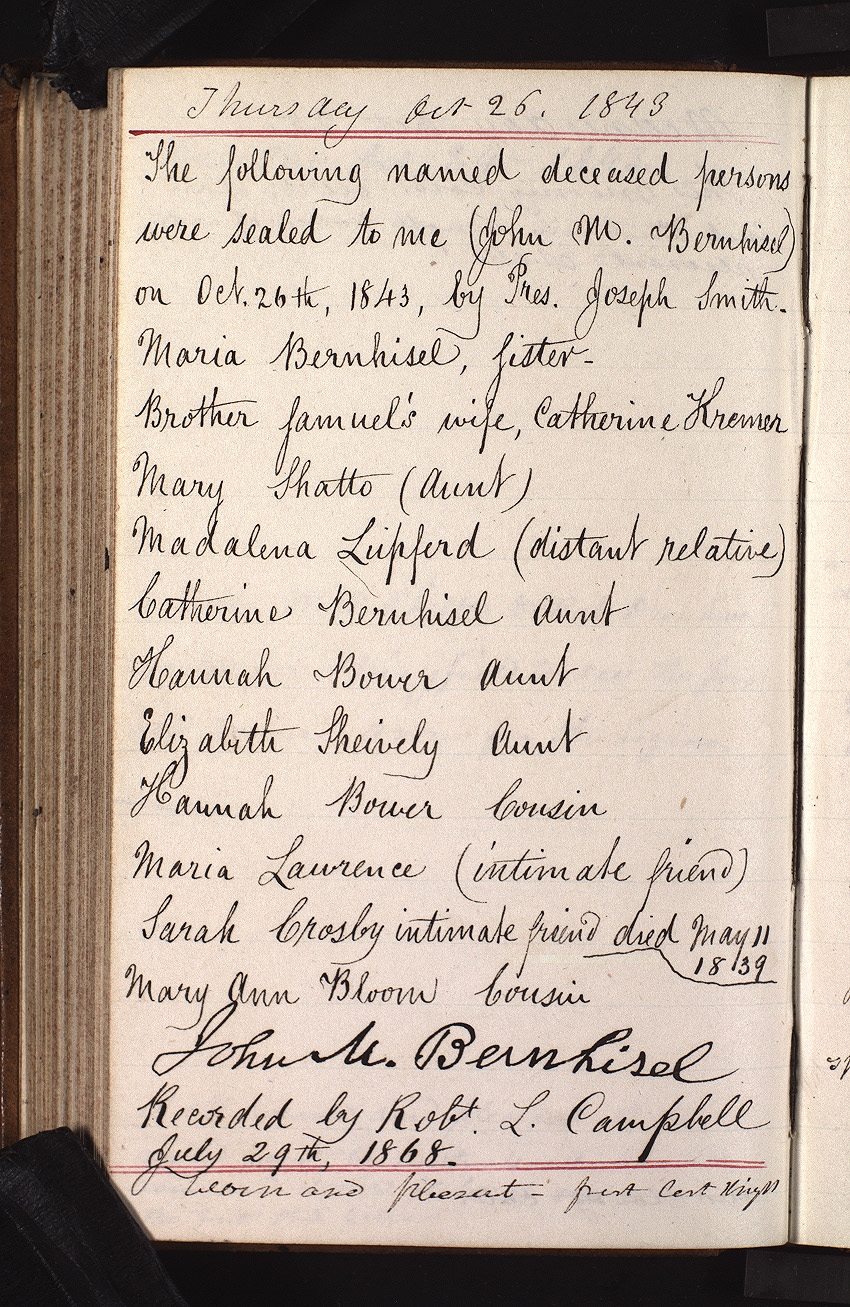 Thursday Oct 26. 1843
The following named deceased persons
were sealed to me (John M. Bernhisel)
on Oct. 26th, 1843, by Pres. Joseph Smith.
Maria Bernhisel, Sister-
Brother Samuel's wife, Catherine Kremer
Mary Shatto (Aunt)
Madalena Lupferd (distant relative)
Catherine Bernhisel Aunt
Hannah Bower Aunt
Elizabeth Sheively Aunt
Hannah Bower Cousin
Maria Lawrence (intimate friend)
Sarah Crosby intimate friend died May 11
1839
Mary Ann Bloom Cousin
John M. Bernhisel
Recorded by Robt. L. Campbell
July 29th, 1868.
and